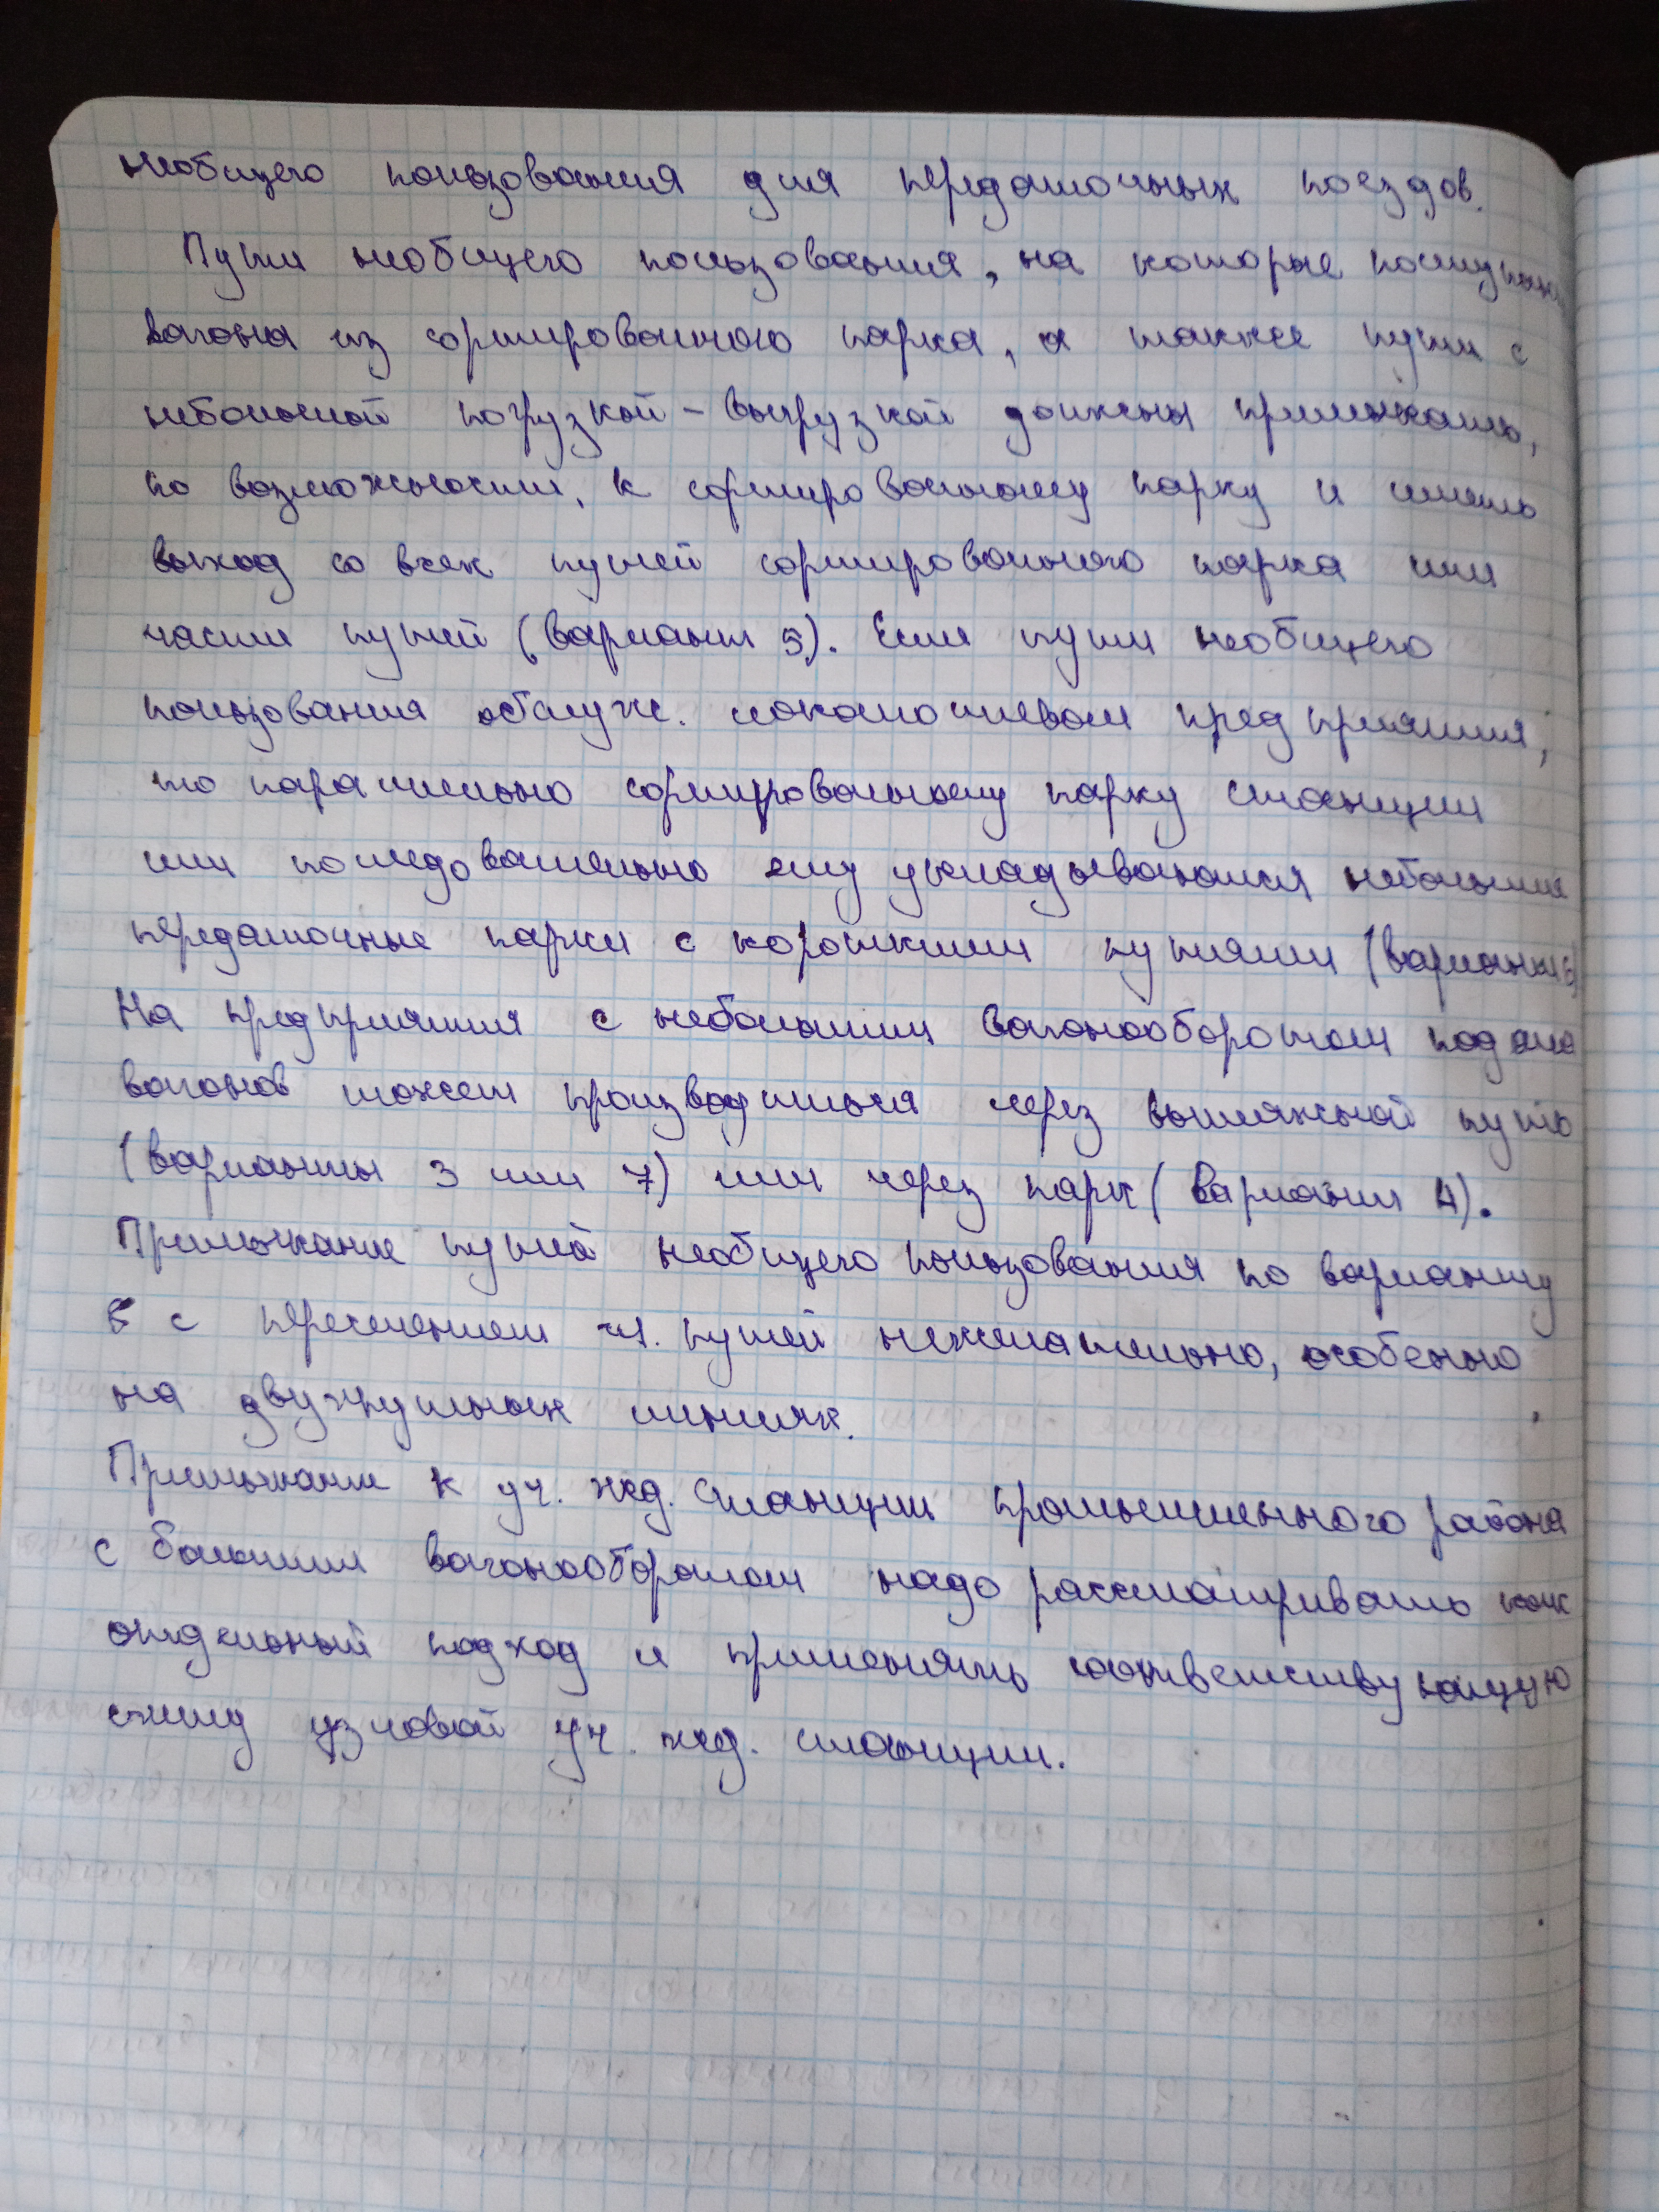 необщего пользования для передаточных поездов.
Пути необщего пользования, на которые поступают
вагоны из сортировочного парка, а также пути с
небольшой погрузкой-выгрузкой должны примыкать,
по возможности, к сортировочному парку и иметь
выход со всех путей сортировочного парка или
части путей (вариант 5). Если пути необщего
пользования обслуж. локомотивом предприятия,
то параллельно сортировочному парку станции
или последовательно ему укладываются небольшие
передаточные парки с короткими путями (вариант 6)
На предприятия с небольшим вагонооборотом подача
вагонов может производиться через вытяжной путь
(варианты 3 или 7) или через парк (вариант 4).
Примыкание путей необщего пользования по варианту
с пересечением гл. путей нежелательно, особенно
на двухпутных линиях.
Примыкание к уч. жд. станции промышленного района
с большим вагонооборотом надо рассматривать как
отдельный подход и применять соответствующую
схему узловой уч. жд. станции.